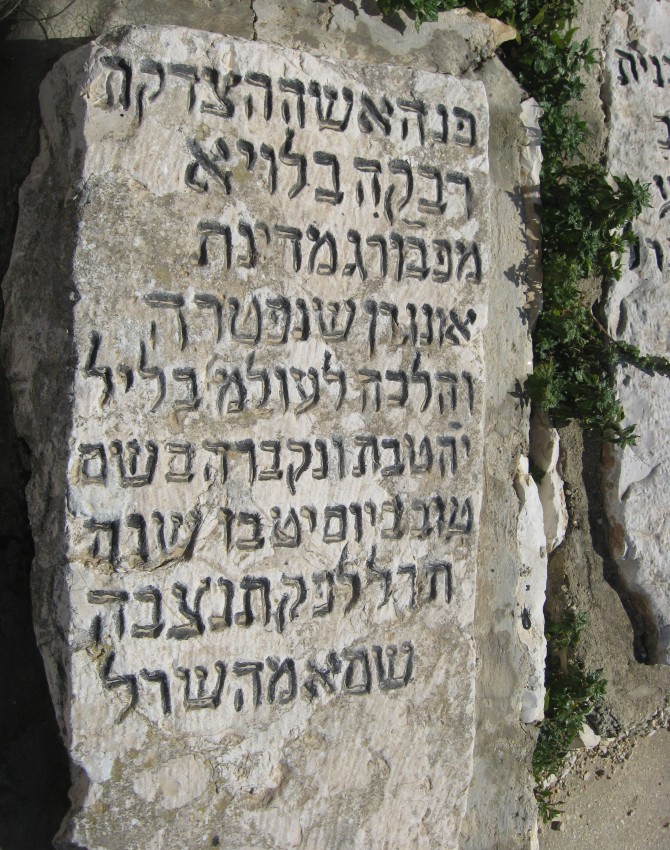 פנ האשה הצדקת
רבקה בלויא
מפבורג מדינת
אונגרן שנפטרה
והלכה לעולמ בליל
יה טבת ונקברה בשם
טוב ביום יט בו שנה
תרל לפק תנצבה
שם אמה שרל